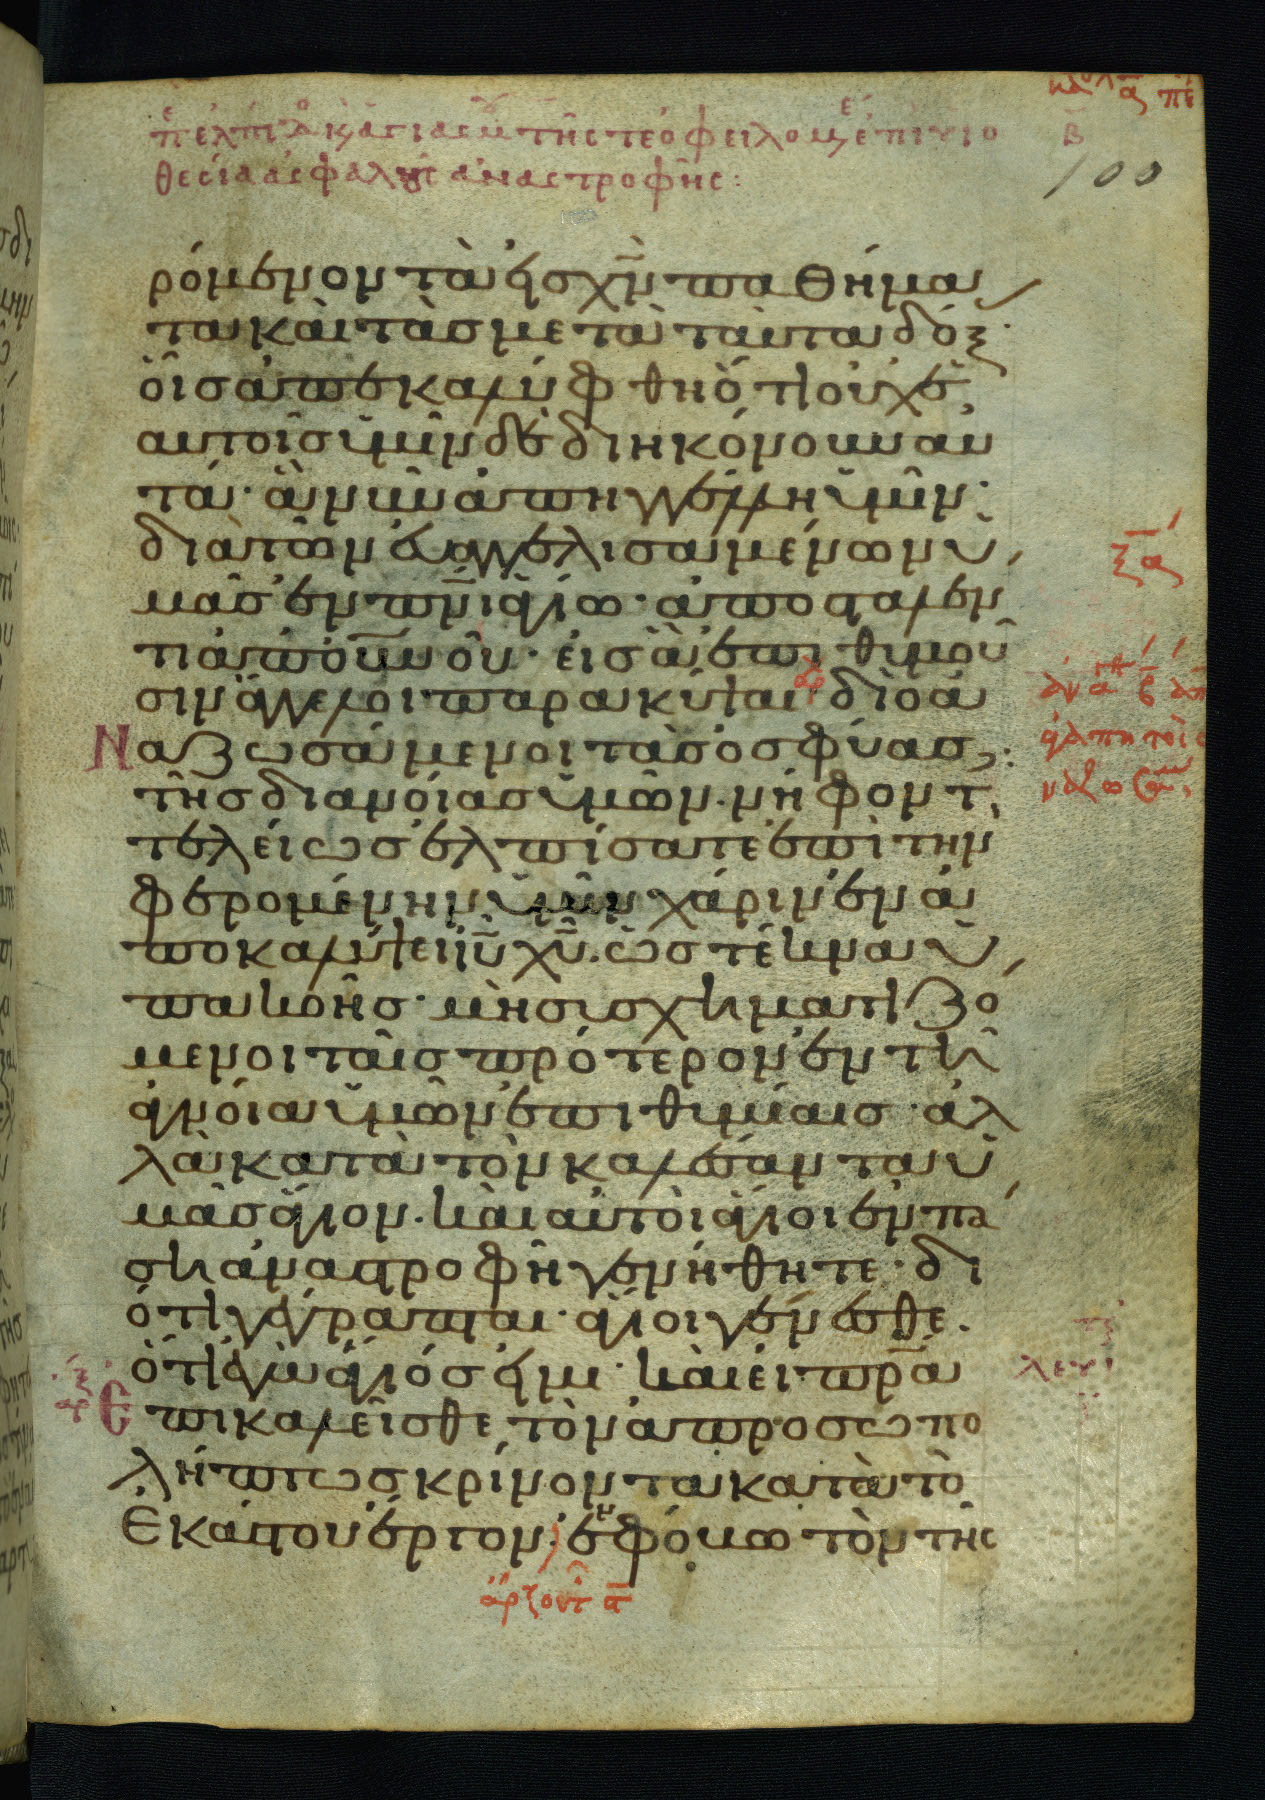 θεσία ἀσφαλοῦς ἀναστροφῆς:
100
ρόμενον τὰ εἰς χν παθήμα
τα καὶ τὰς μετὰ ταῦτα δόξ
οἷς ἀπεκαλύφθη ὅτι οὐχ ἑ
αυτοῖς ὑμῖν δὲ διηκόνουν αὐ
τά· ἃ νῦν ἀπηγγέλη ὑμῖν·
διὰ τῶν εὐαγγελισαμένων ὑ
μᾶς ἐν πνι ἁγίω· ἀποσταλέν
τι ἀπ' οὐνου· εἰς ἃ ἐπιθυμοῦ
σιν ἄγγελοι παρακύψαι· διὸ ἀ
Ναζωσάμενοι τὰς ὀσφύας
τῆς διανοίας ὑμῶν. νήφοντ
τελείως ἐλπίσατε ἐπὶ τὴν
φερομένην ὑμῖν χάριν ἐν ἀ
ποκαλύψει ιυ χυ. ὡς τέκνα ὑ
πακοῆς· μὴ συσχηματιζό
μενοι ταῖς πρότερον ἐν τῆ
ἀγνοία ὑμῶν ἐπιθυμίαις· ἀλ
λὰ κατὰ τὸν καλέσαντα ὑ
μᾶς ἅγιον. καὶ αὐτοὶ ἅγιοι ἐν πά
ση ἀναστροφῆ γενήθητε· δι
ότι γέγραπται· ἅγιοι γένεσθε.
ὅτι ἐγὼ ἅγιός εἰμι· καὶ εἰ πρα
Ἐπικαλεῖσθε τὸν ἀπροσωπο
λήπτως κρίνοντα κατὰ τὸ
Ἑκάστου ἔργον· ἐν φόβω τὸν τῆς